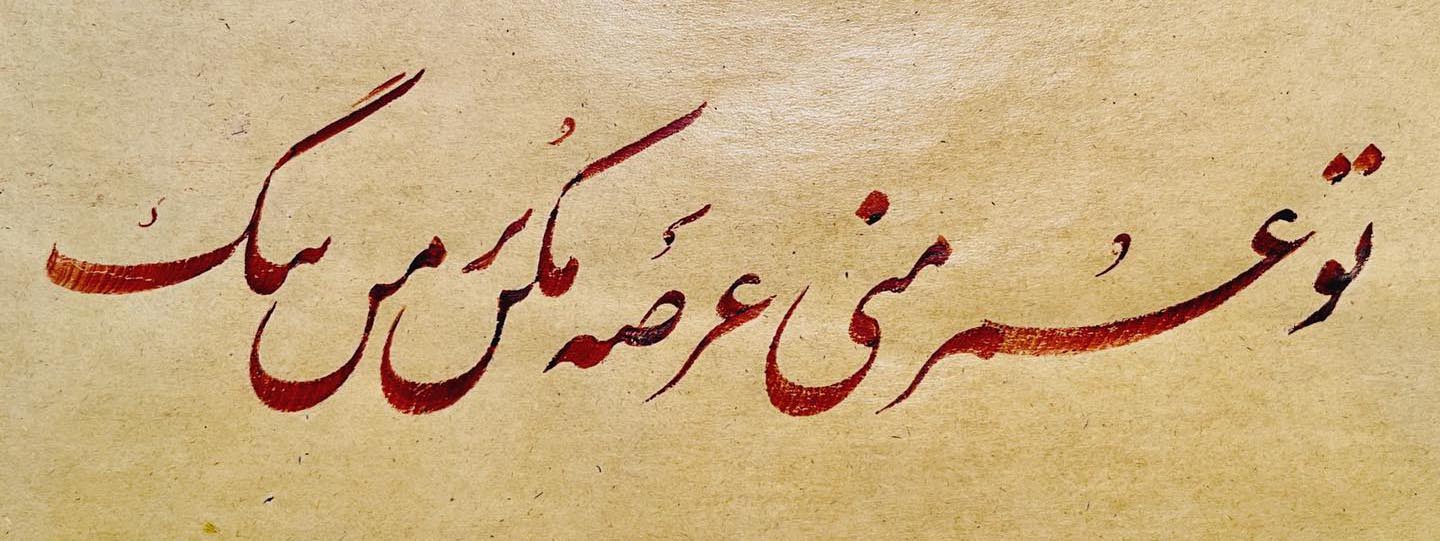 تو عمر منی عرصه مکن بر من تنگ